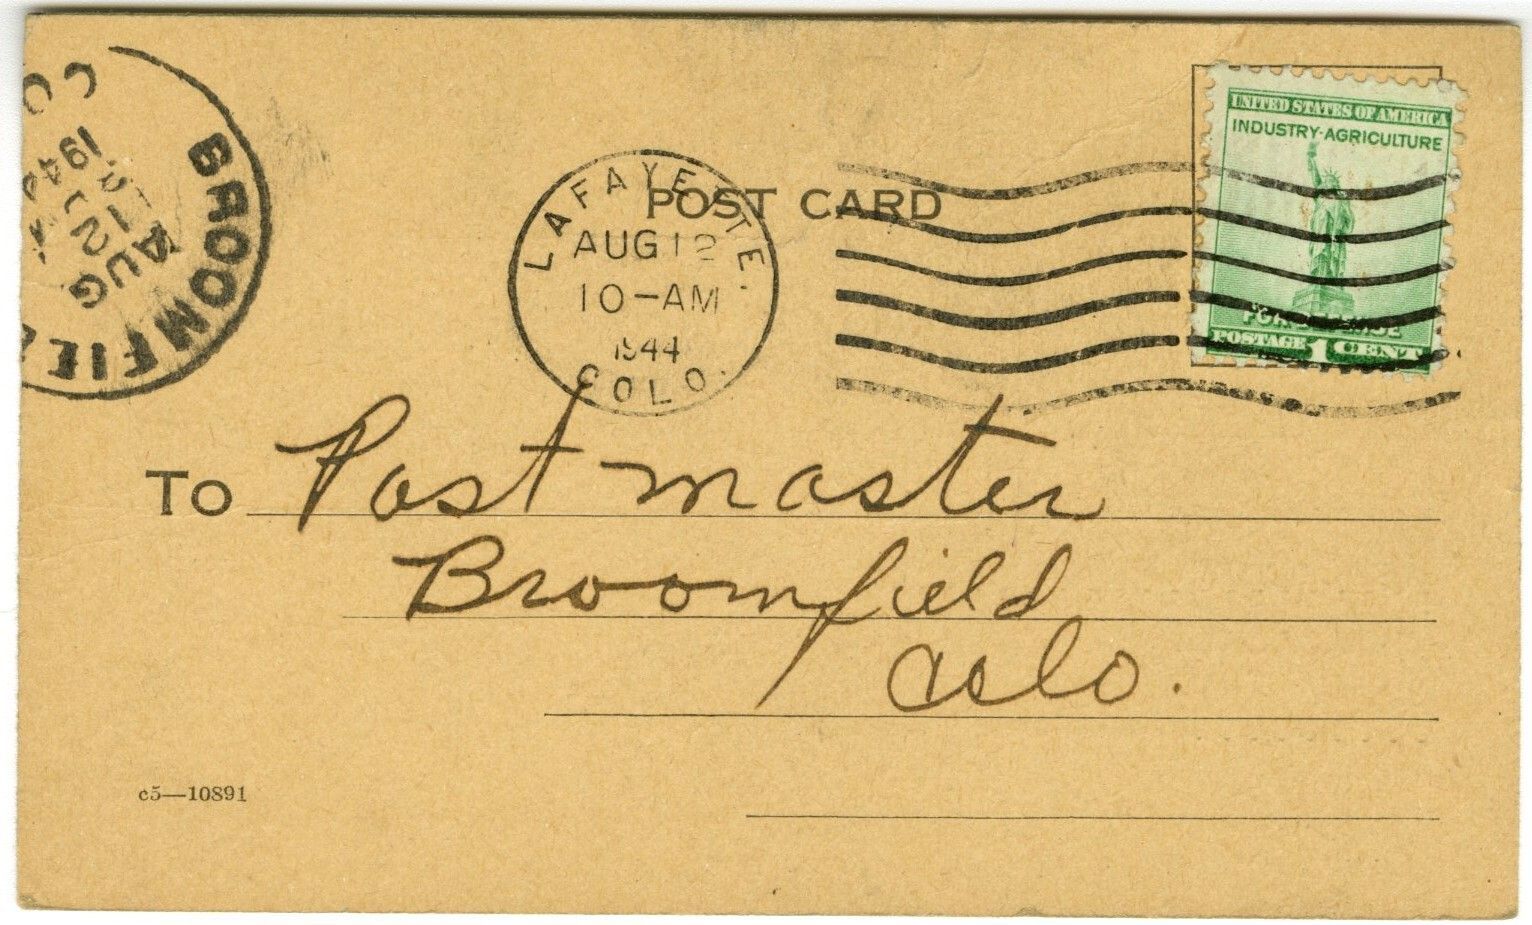 BROOMFIEL
CO
AUG
12
1944
LAFAYETTE
AUG 12
10-AM
1944
COLO.
POST CARD
UNITED STATES OF AMERICA
INDUSTRY-AGRICULTURE
FOR DEFENSE
POSTAGE 1 CENT
To Postmaster
Broomfield
Colo.
c5—10891